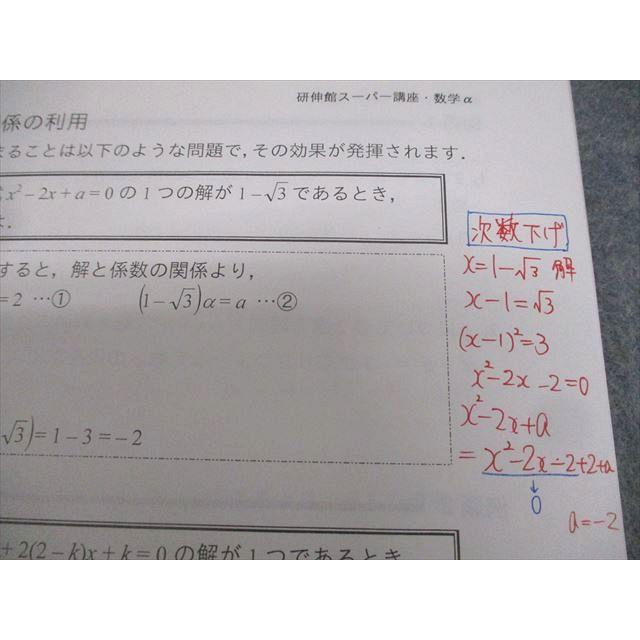 研伸館スーパー講座・数学α
係の利用
ることは以下のような問題で,その効果が発揮されます.
x²-2x+a=0の1つの解が1-√3であるとき,
次数下げ
x=1-√3 解
すると,解と係数の関係より,
=2 …① (1-√3)α=a …②
x-1=√3
(x-1)²=3
x²-2x-2=0
x²-2x+a
√3)=1-3=-2
=x²-2x-2+2+a
↓
0
a=-2
+2(2-k)x+k=0の解が1つであるとき